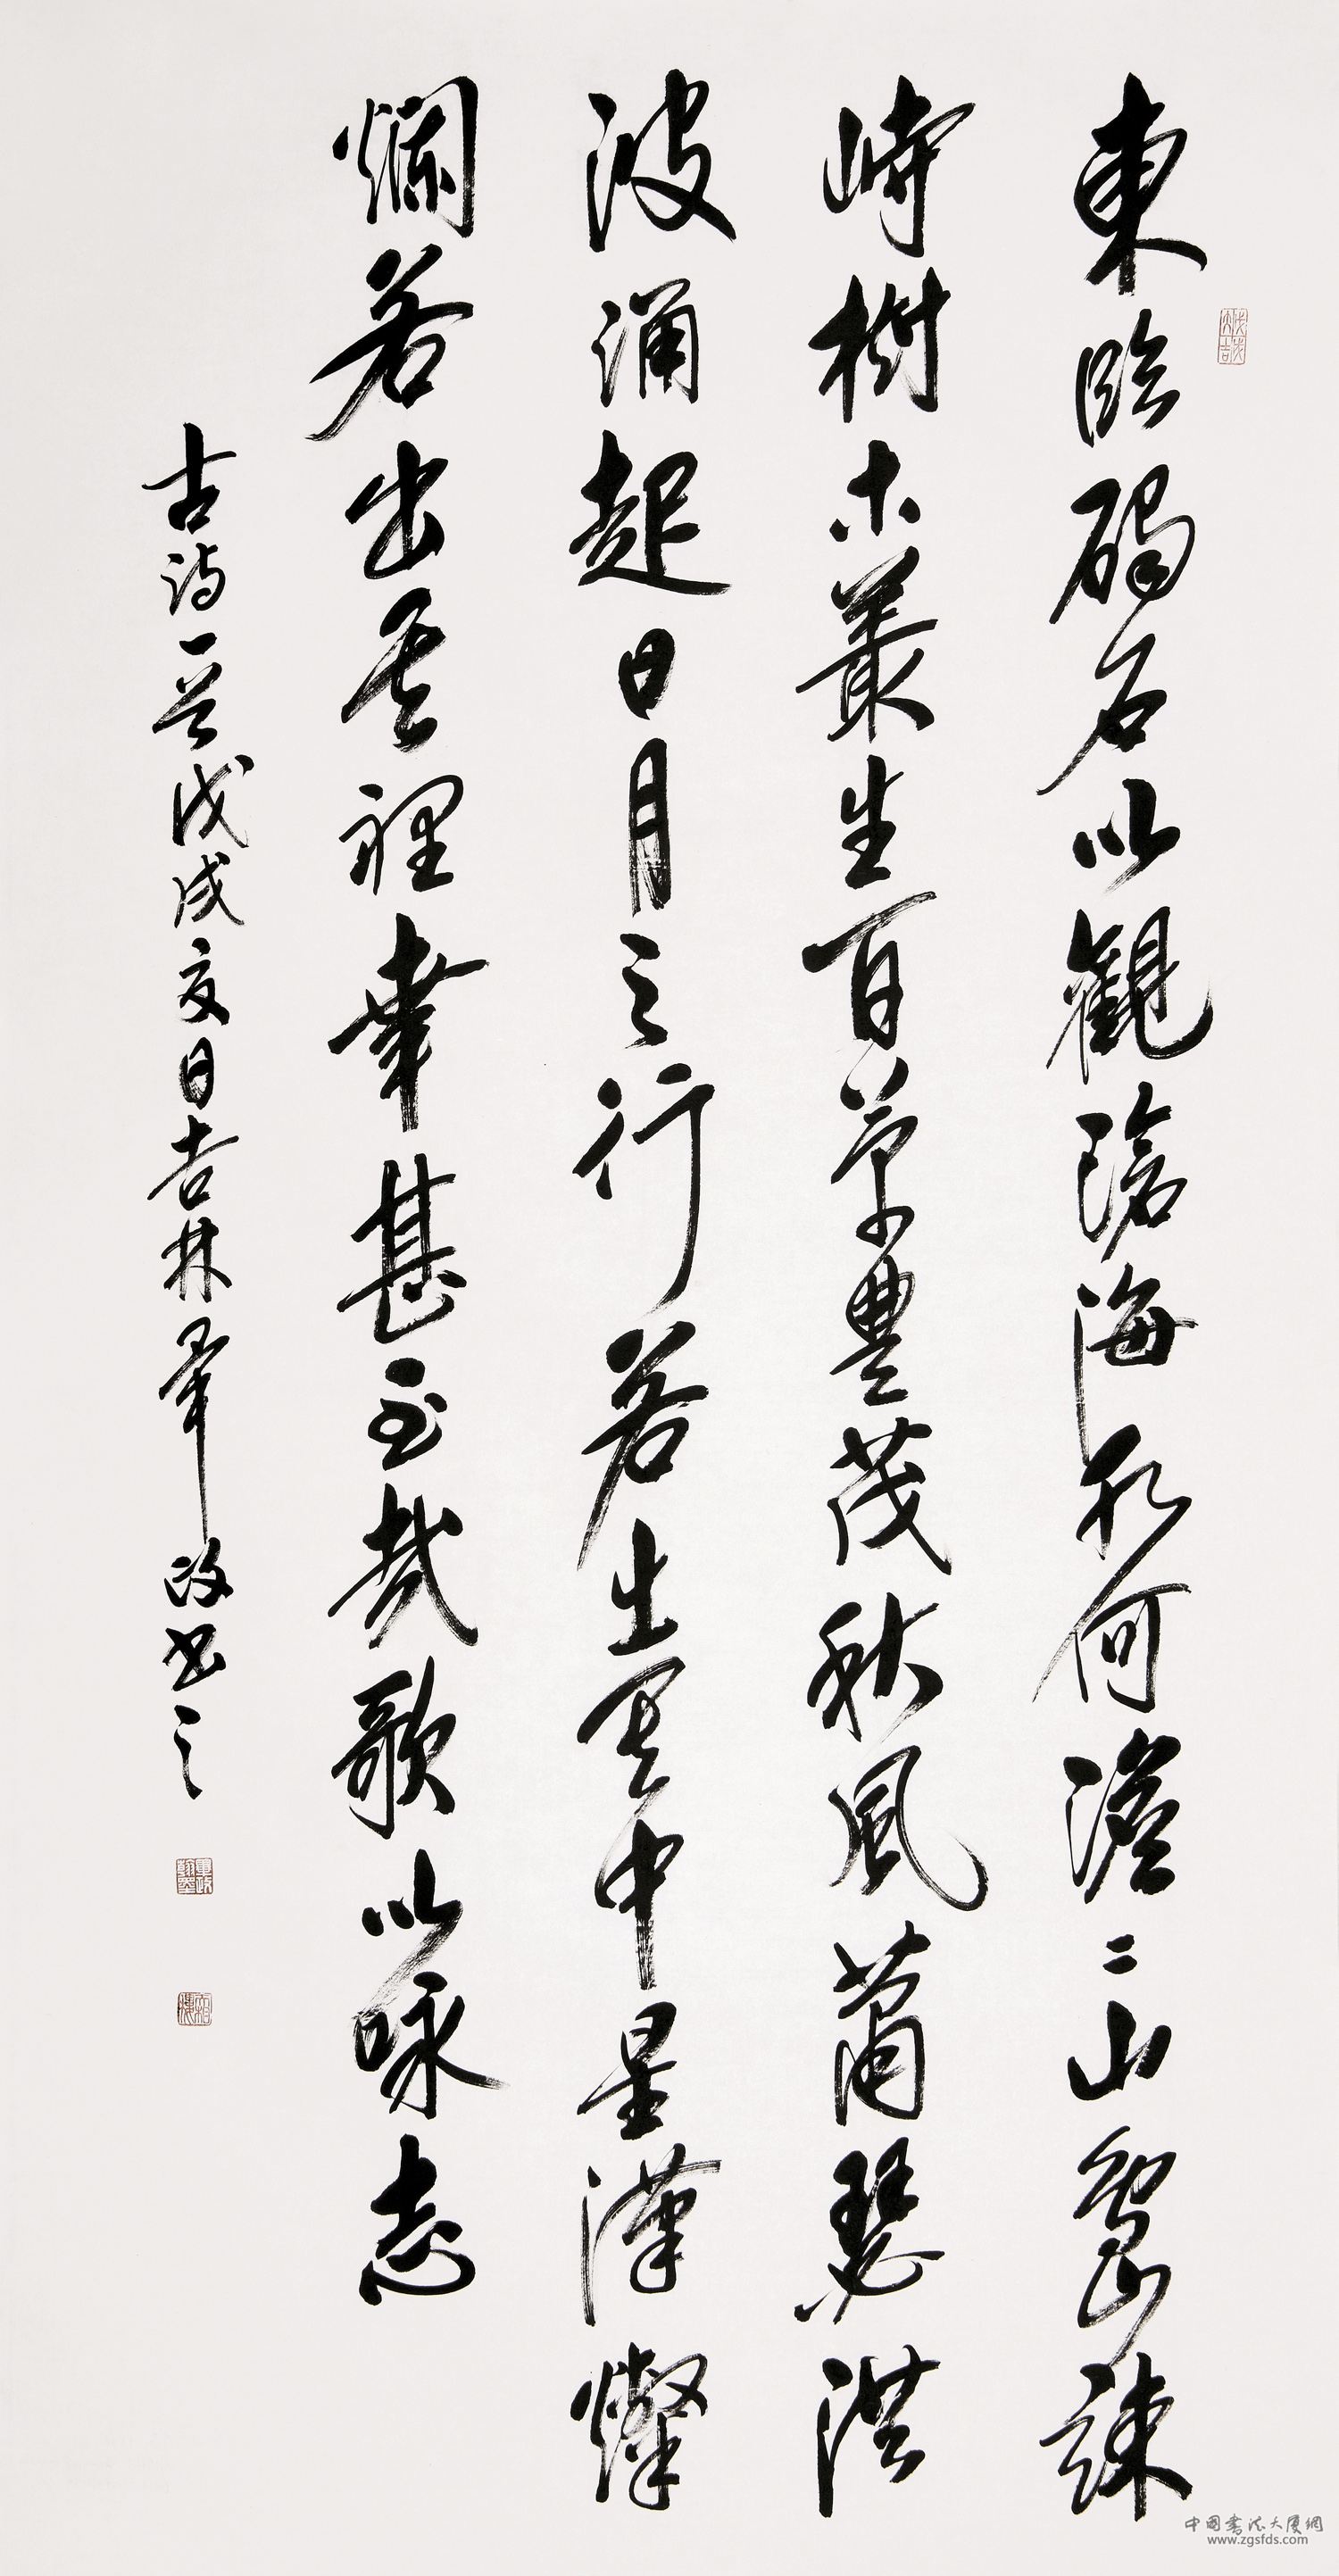 東臨碣石以觀滄海水何澹二山島竦
峙樹木叢生百草豐茂秋風蕭瑟洪
波涌起日月之行若出其中星漢燦
爛若出其裡幸甚至哉歌以咏志
古詩一首戊戌夏日吉林軍政書之
戊戌大吉
軍政翰墨
中國書法大廈網
www.zgsfds.com